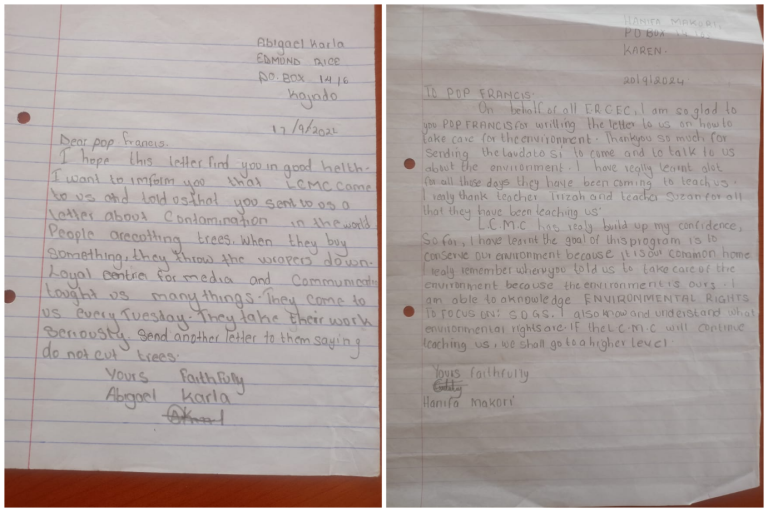 Abigael Karla
EDMUND RICE
P.O. BOX 1416
Kajado
17/9/2022
Dear pop francis.
I hope this letter find you in good helth.
I want to imform you that LCMC come
to us and told us that you sent to us a
letter about Contamination in the world
People are cotting trees, when they buy
something, they throw the wrapers down.
Loyal centre for media and Communicati
taught us many things. They come to
us every Tuesday. They take their work
seriously. Send another letter to them saying
do not cut trees.
Yours faithfully
Abigael Karla
HANIFA MAKORI
P O BOX
KAREN.
20/9/2024.
TO POP FRANCIS.
On behalf of all ERCEC, I am so glad to
you POP FRANCIS for writting the letter to us on how to
take care for the environment. Thankyou so much for
sending the laudato si to come and to talk to us
about the environment. I have really learnt alot
for all those days they have been coming to teach us.
I realy thank teacher Irizah and teacher Suzan for all
that they have been teaching us.
L.C.M.C has realy build up my confidence,
So far, I have learnt the goal of this program is to
conserve our environment because it is our common home
I realy remember when you told us to take care of the
environment because the environment is ours. I
am able to aknowledge ENVIRONMENTAL RIGHTS
TO FOCUS ON: S.D.G.S. I also know and understand what
environmental rights are. If the L.C.M.C will continue
teaching us, we shall go to a higher level.
Yours faithfully
Hanifa Makori